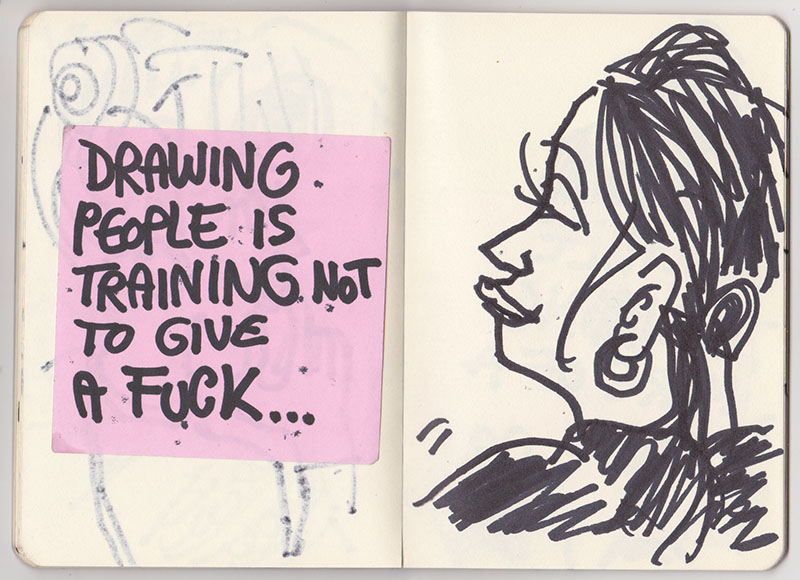 DRAWING
PEOPLE IS
TRAINING NOT
TO GIVE
A FUCK...